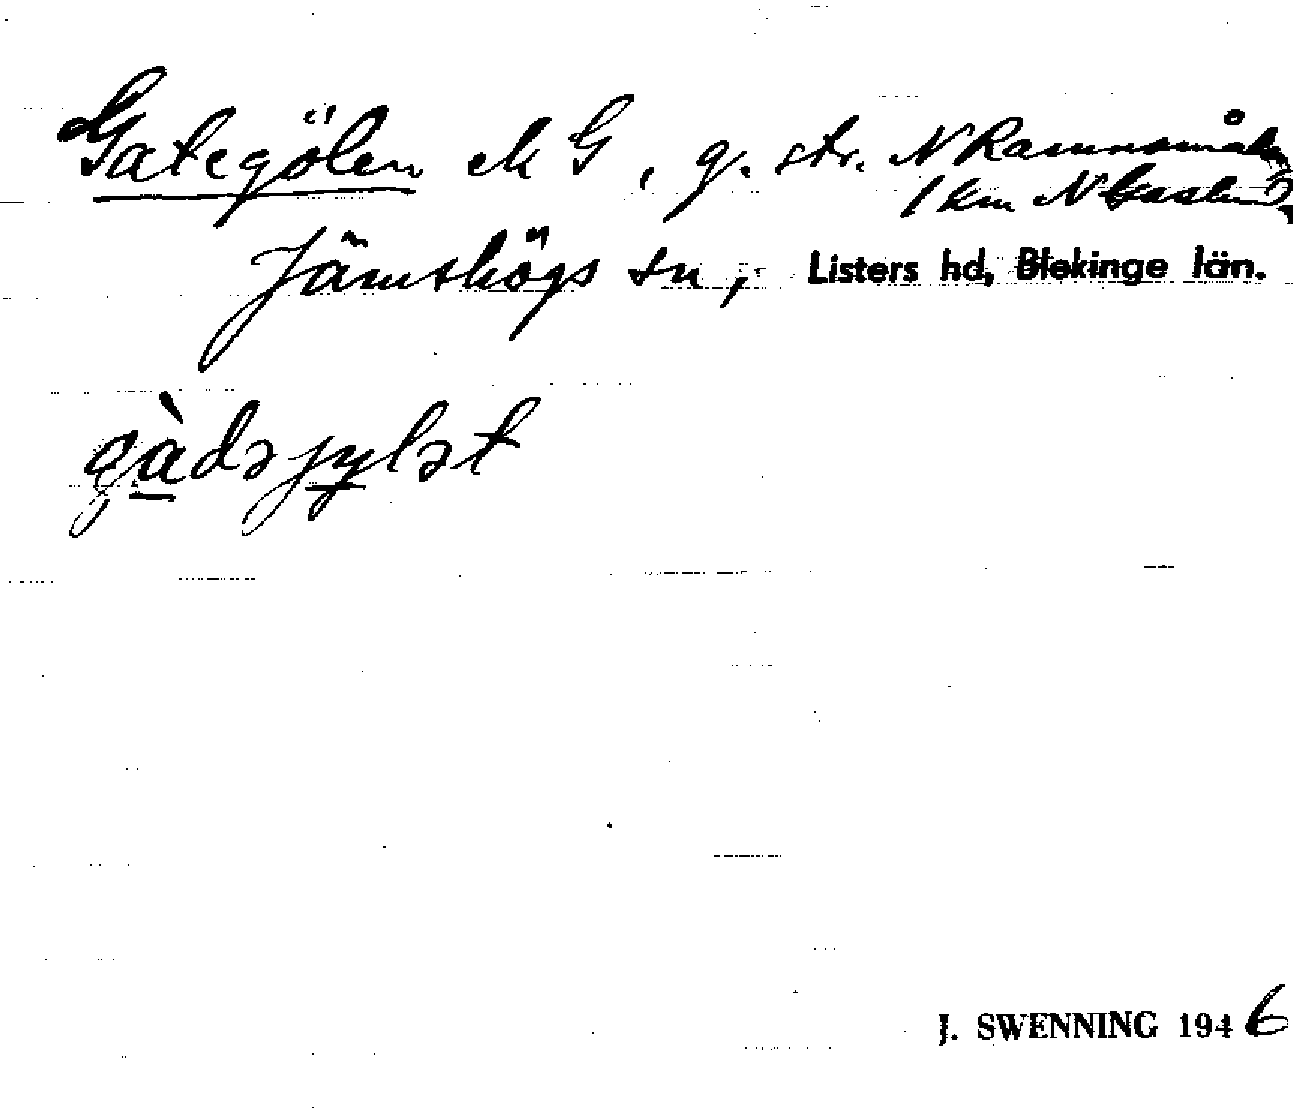 Gategölen M G, g. str. N Ramnamåla
1 km N
Jämshögs sn, Listers hd, Blekinge län.
gàdəjylət
J. SWENNING 1946